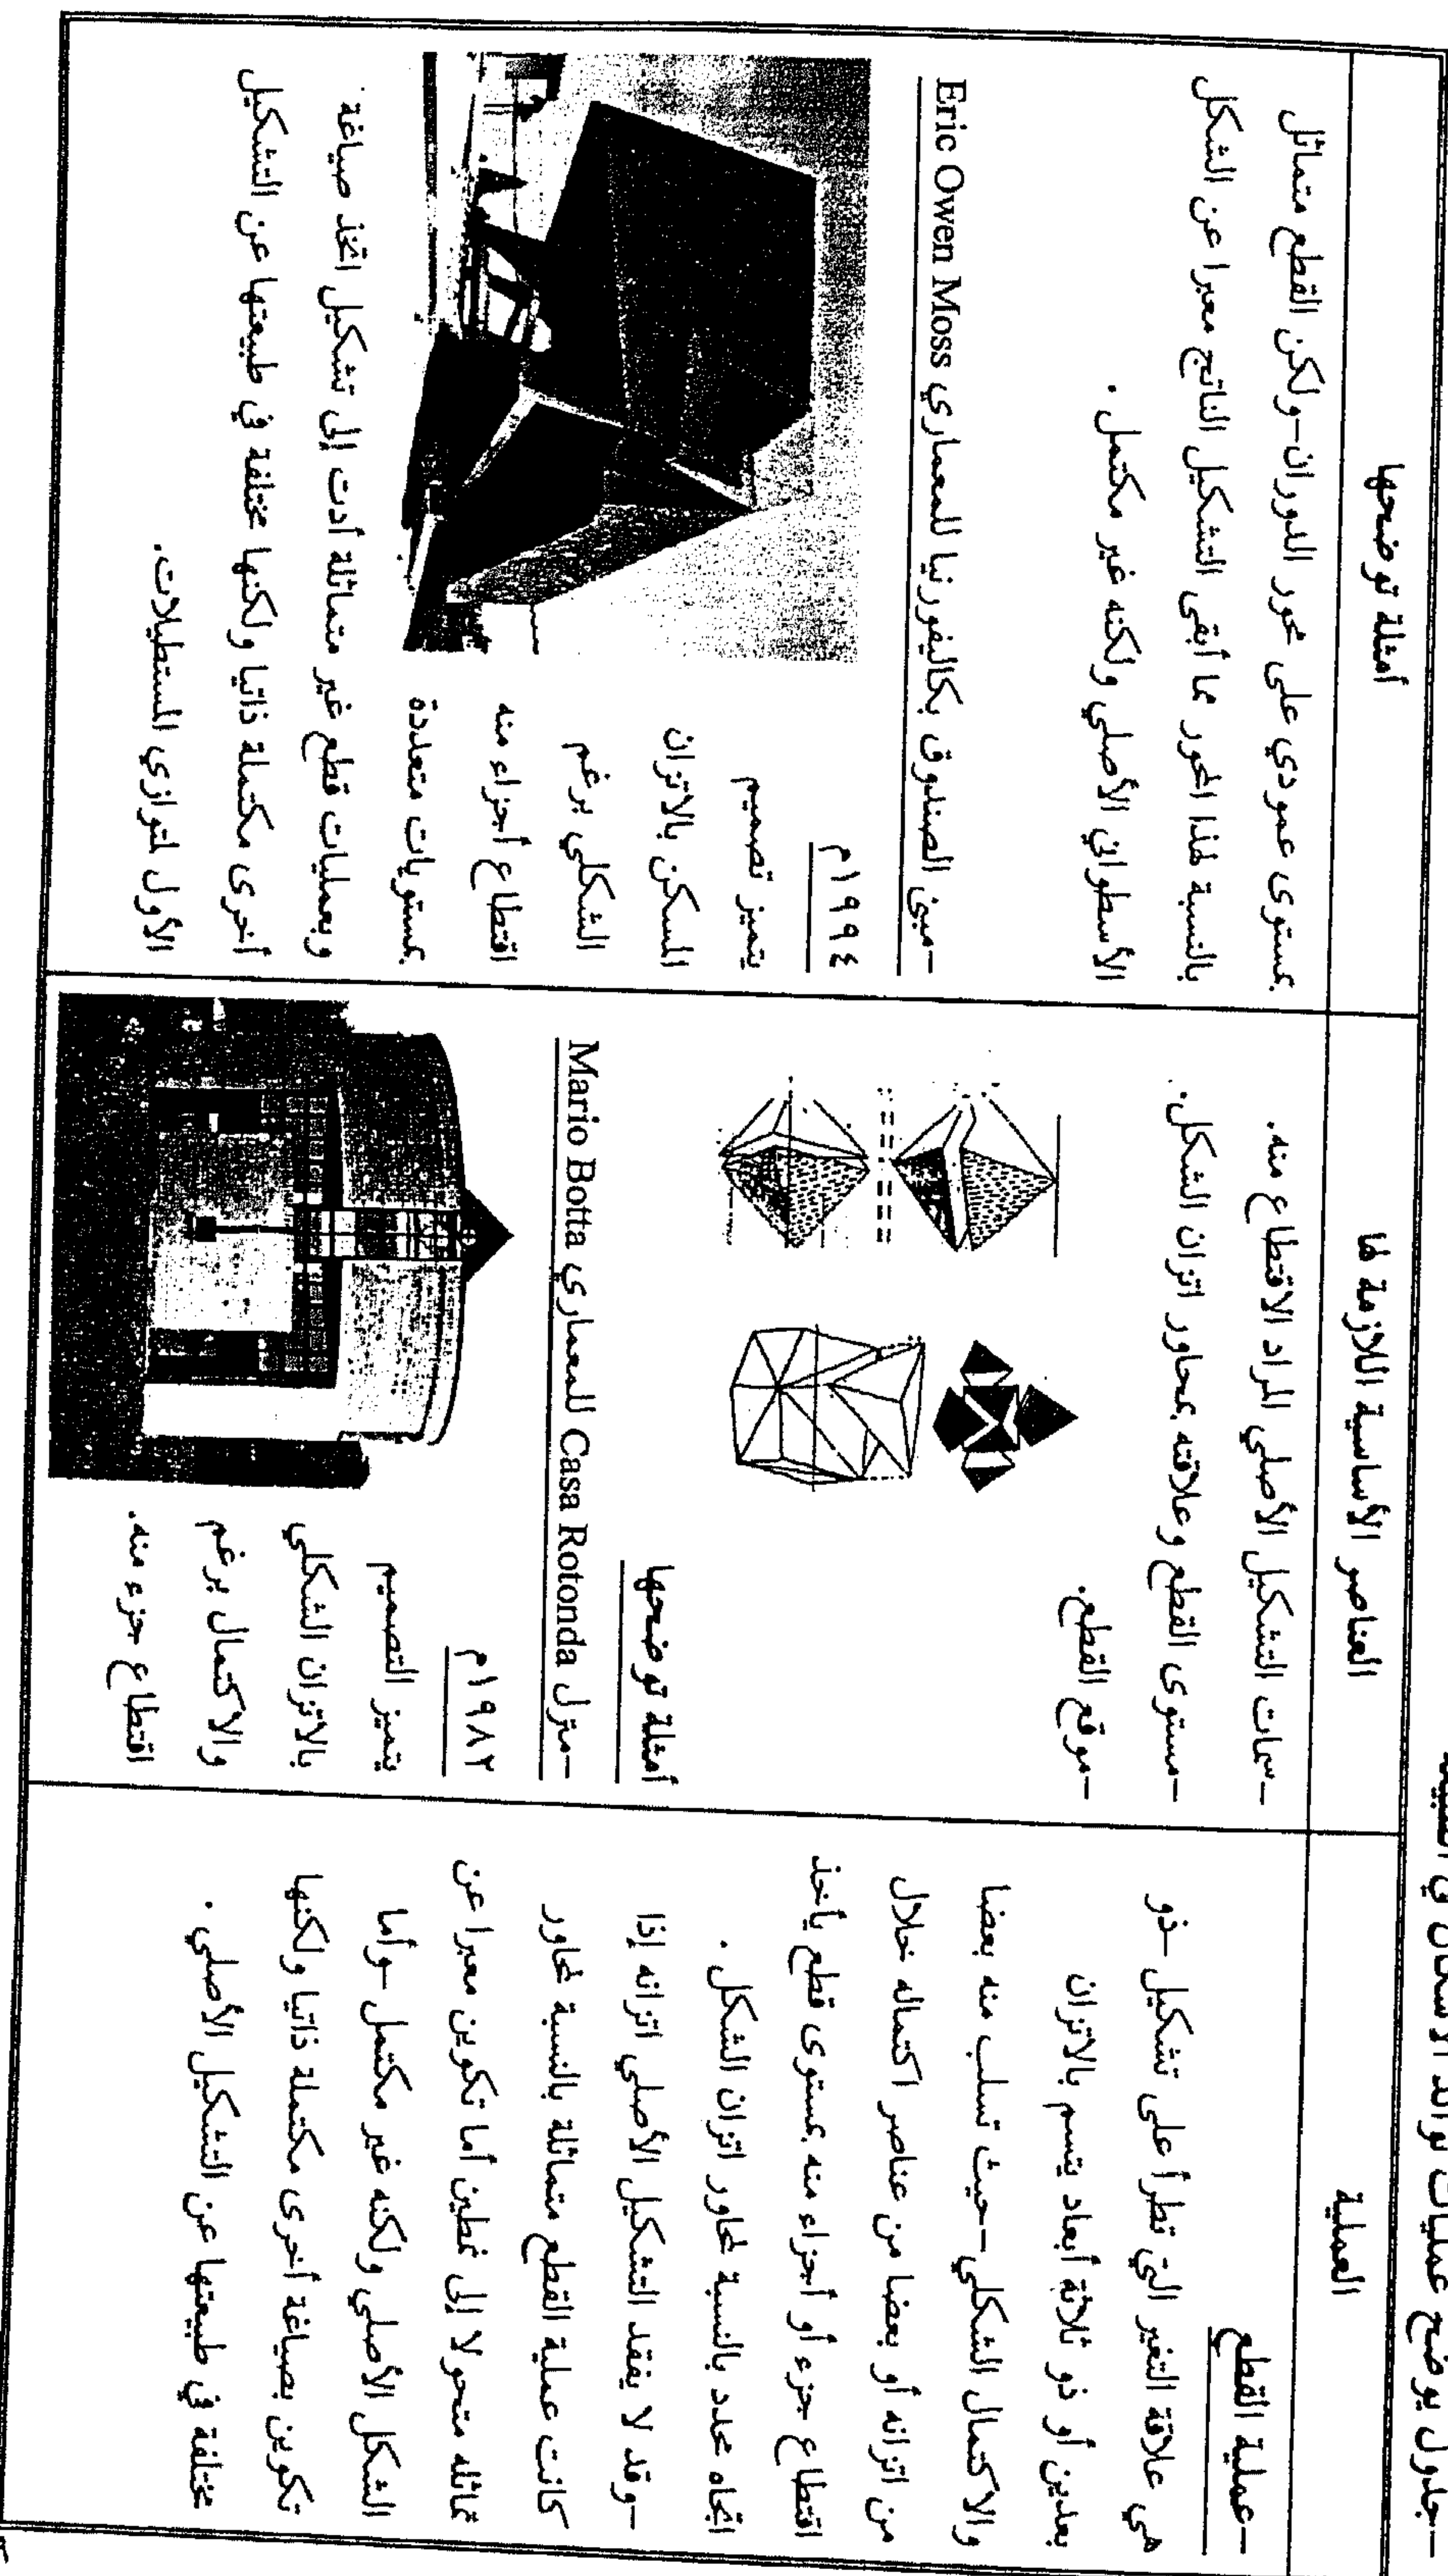 -جدول يوضح عمليات توالد الأشكال في
العملية
العناصر الأساسية اللازمة لها
أمثلة توضحها
-عملية القطع
هي علاقة التغير التي تطرأ على تشكيل -ذو
بعدين أو ذو ثلاثة أبعاد يتسم بالاتزان
والاكتمال الشكلي-حيث تسلب منه بعضا
من اتزانه أو بعضا من عناصر اكتماله خلال
اقتطاع جزء أو أجزاء منه بمستوى قطع يأخذ
اتجاه محدد بالنسبة لمحاور اتزان الشكل .
-وقد لا يفقد التشكيل الأصلي اتزانه إذا
كانت عملية القطع متماثلة بالنسبة لمحاور
تماثله متحولا إلى نمطين أما تكوين معبرا عن
الشكل الأصلي ولكنه غير مكتمل -وأما
تكوين بصياغة أخرى مكتملة ذاتيا ولكنها
مختلفة في طبيعتها عن التشكيل الأصلي .
-سمات التشكيل الأصلي المراد الاقتطاع منه.
-مستوى القطع وعلاقته بمحاور اتزان الشكل.
-موقع القطع.
أمثلة توضحها
-منزل Casa Rotonda للمعماري Mario Botta
١٩٨٢م
يتميز التصميم
بالاتزان الشكلي
والاكتمال برغم
اقتطاع جزء منه.
بمستوى عمودي على محور الدوران-ولكن القطع متماثل
بالنسبة لهذا المحور مما أبقى التشكيل الناتج معبرا عن الشكل
الأسطواني الأصلي ولكنه غير مكتمل .
-مبنى الصندوق بكاليفورنيا للمعماري Eric Owen Moss
١٩٩٤م
يتميز تصميم
المسكن بالاتزان
الشكلي برغم
اقتطاع أجزاء منه
بمستويات متعددة
وبعمليات قطع غير متماثلة أدت إلى تشكيل اتخذ صياغة
أخرى مكتملة ذاتيا ولكنها مختلفة في طبيعتها عن التشكيل
الأول لمتوازي المستطيلات.